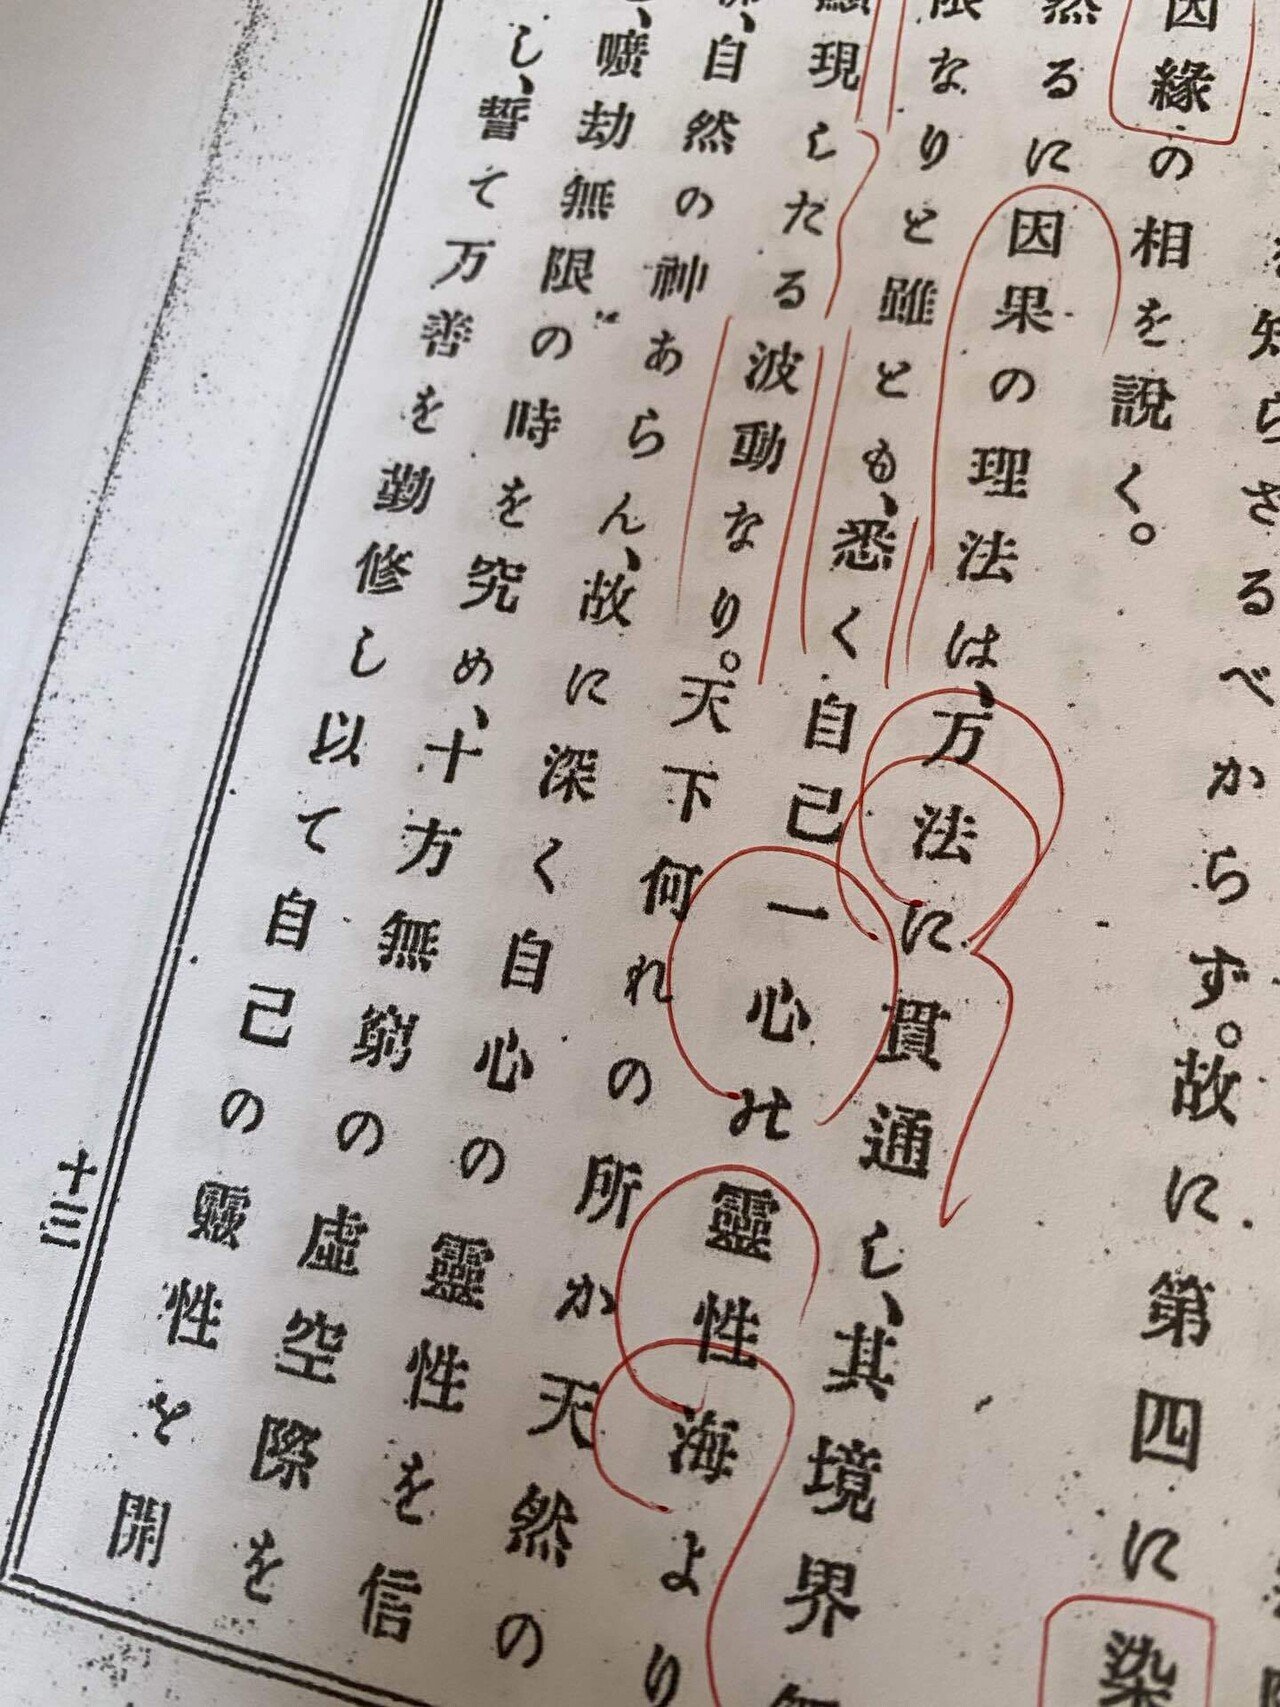 知らざるべからず。故に第四に染
因縁の相を説く。
然るに因果の理法は、万法に貫通し、其境界無
限なりと雖とも、悉く自己一心の靈性海より
顯現したる波動なり。天下何れの所か天然の
自然の神あらん、故に深く自心の靈性を信
曠劫無限の時を究め、十方無窮の虚空際を
し、誓て万善を勤修し以て自己の靈性を開
十三